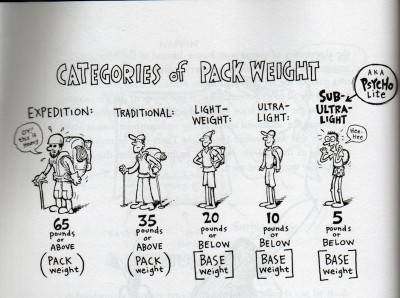 CATEGORIES of PACK WEIGHT
AKA
PSYCHO
Lite
EXPEDITION:
TRADITIONAL:
LIGHT-
WEIGHT:
ULTRA-
LIGHT:
SUB-
ULTRA-
LIGHT
this is
heavy
Hee-
Hee
65
pounds
or
ABOVE
(PACK
weight)
35
pounds
or
ABOVE
(PACK
weight)
20
pounds
or
BELOW
[BASE
weight]
10
pounds
or
BELOW
[BASE
weight]
5
pounds
or
BELOW
[BASE
weight]